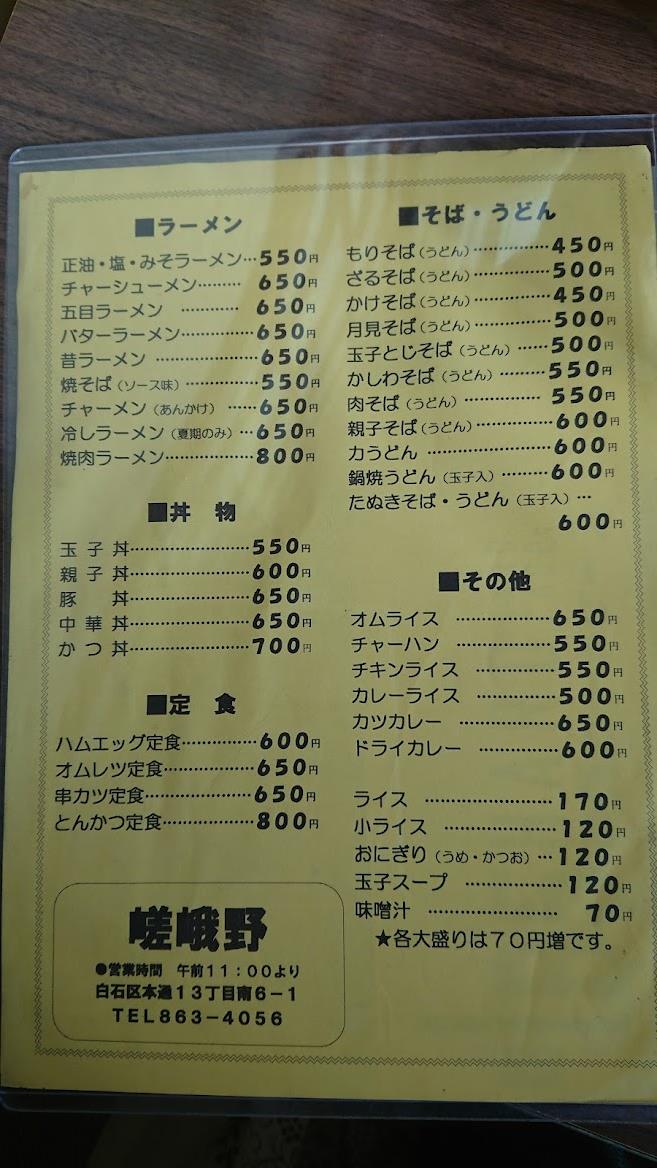 ■ラーメン
正油・塩・みそラーメン…550円
チャーシューメン……… 650円
五目ラーメン ………… 650円
バターラーメン…………650円
昔ラーメン ……………650円
焼そば(ソース味)…………550円
チャーメン(あんかけ) ……650円
冷しラーメン(夏期のみ)…650円
焼肉ラーメン……………800円
■丼 物
玉子丼……………………550円
親子丼……………………600円
豚 丼……………………650円
中華丼……………………650円
かつ丼……………………700円
■定 食
ハムエッグ定食…………600円
オムレツ定食……………650円
串カツ定食………………650円
とんかつ定食……………800円
嵯峨野
●営業時間 午前11:00より
白石区本通13丁目南6-1
TEL863-4056
■そば・うどん
もりそば(うどん)……………450円
ざるそば(うどん)……………500円
かけそば(うどん)……………450円
月見そば(うどん)……………500円
玉子とじそば(うどん) ……500円
かしわそば(うどん) ………550円
肉そば(うどん) …………… 550円
親子そば(うどん)……………600円
力うどん …………………600円
鍋焼うどん(玉子入)………600円
たぬきそば・うどん(玉子入)…
600円
■その他
オムライス ………………650円
チャーハン ………………550円
チキンライス ……………550円
カレーライス ……………500円
カツカレー ………………650円
ドライカレー ……………600円
ライス ……………………170円
小ライス …………………120円
おにぎり(うめ・かつお)…120円
玉子スープ ………………120円
味噌汁 …………………… 70円
★各大盛りは70円増です。